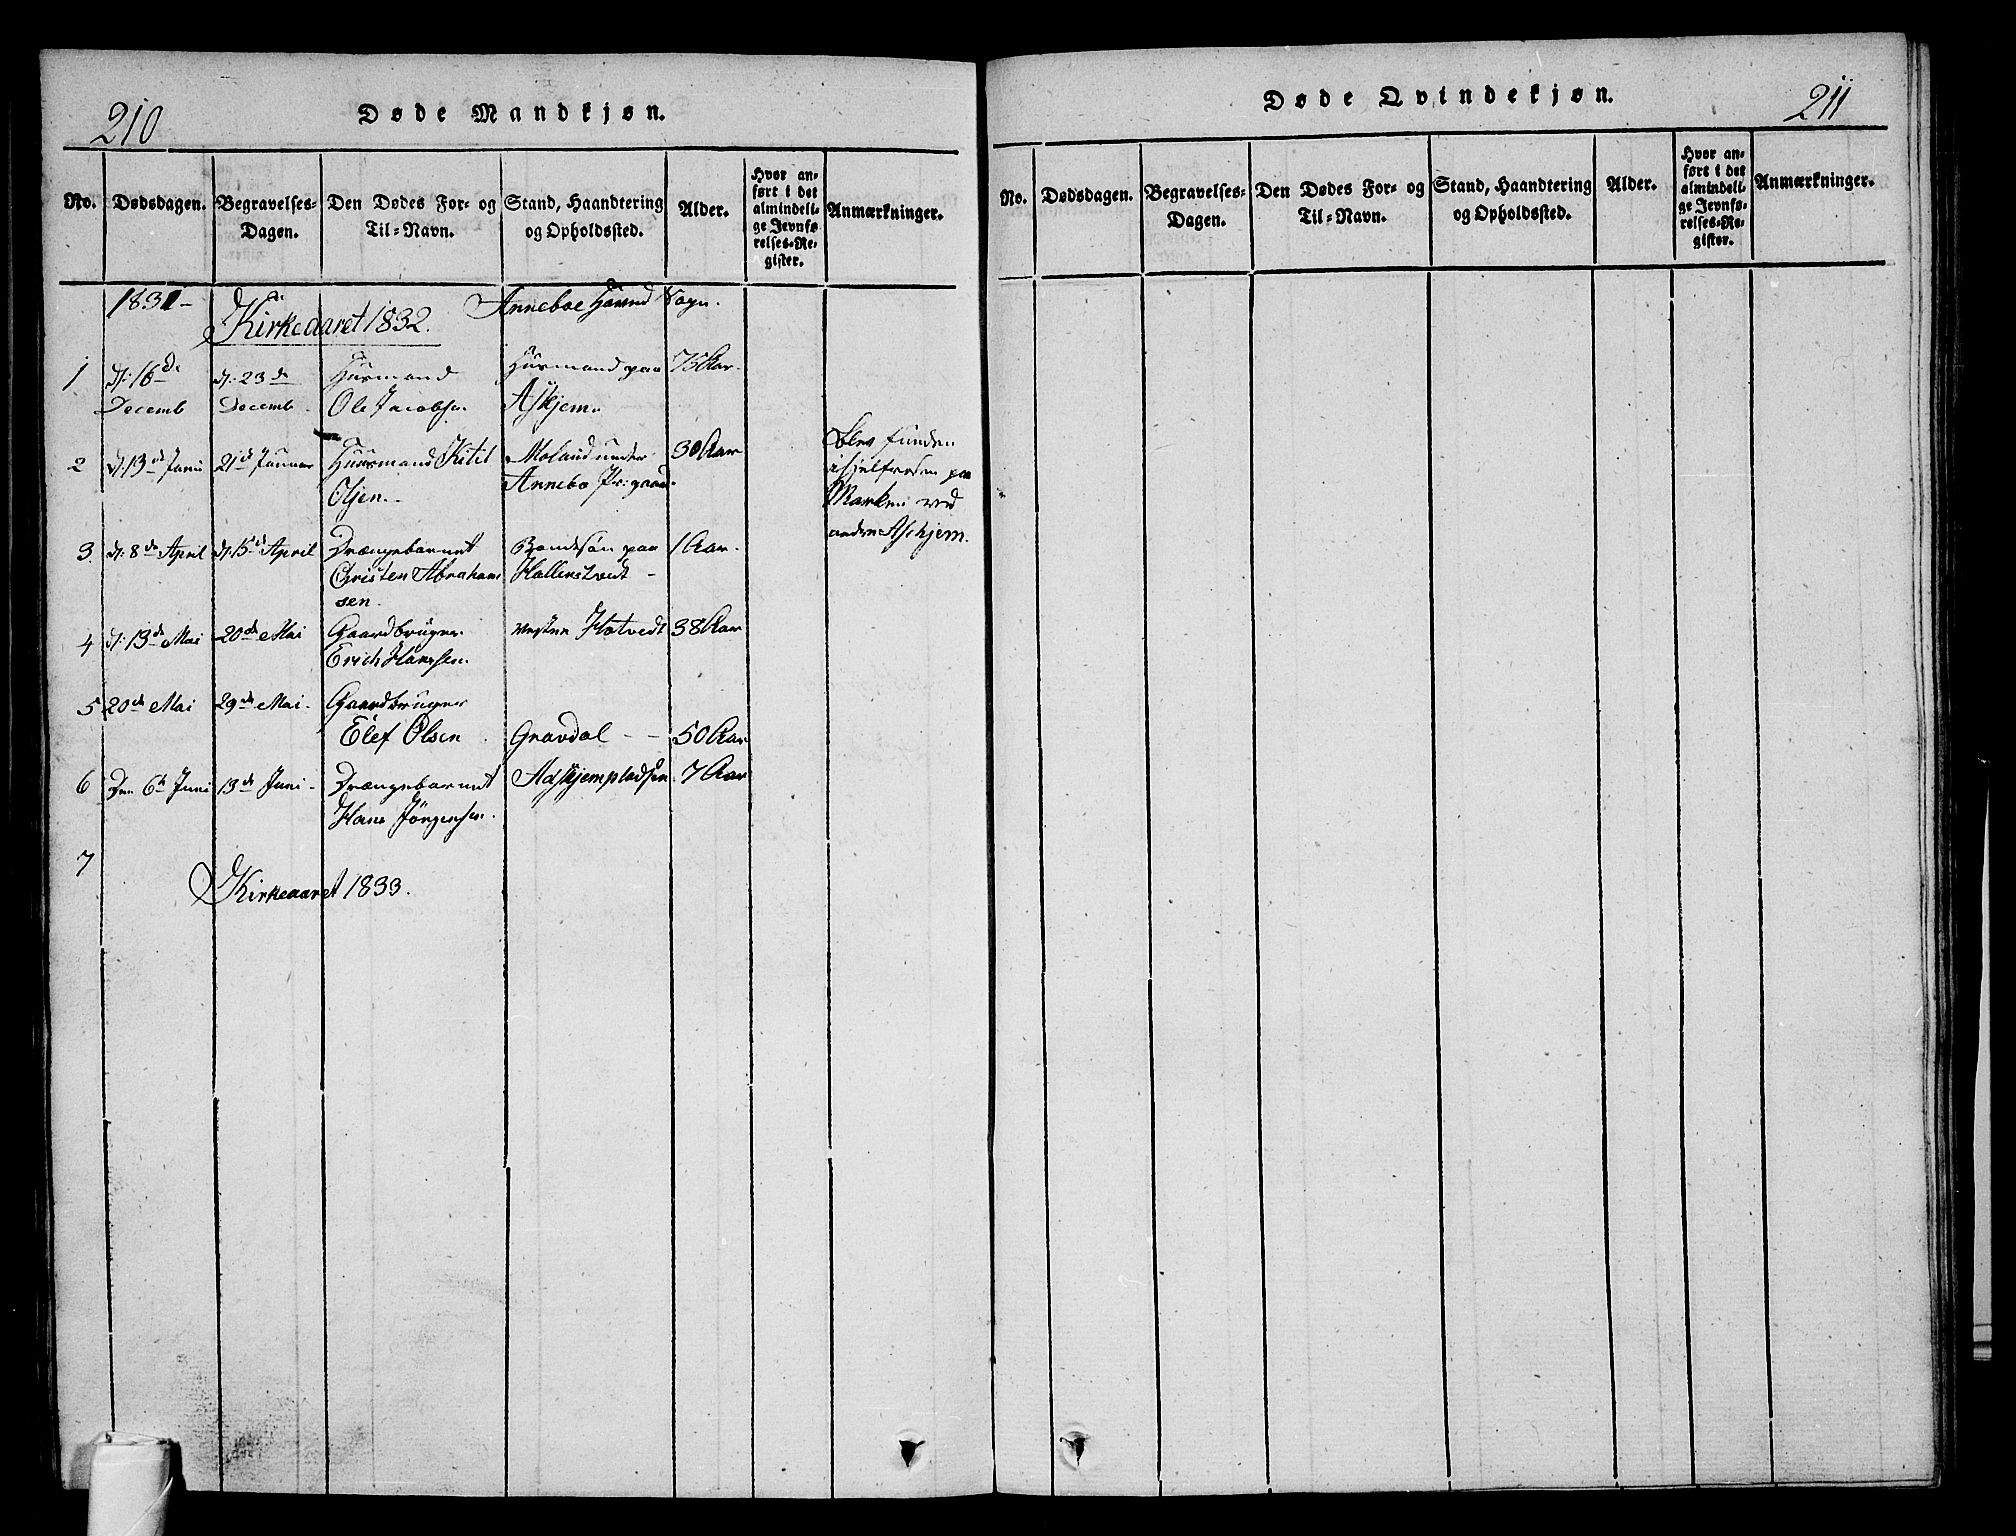 210
Døde Mandkjøn.
No. Dødsdagen. Begravelses-Dagen. Den Dødes For- og Til-Navn. Stand, Haandtering og Opholdssted. Alder. Hvor anført i det almindelige Jevnførelses-Register. Anmærkninger.
1831- Kirkeaaret 1832. Anneboe Sogn.
1 d: 16de Decemb d: 23de Decemb. Huusmand Ole Jacobsen Huusmand paa Askjem. 75 Aar.
2 d: 13de Janu 21de Januar Huusmand Kitil Olsen. Moland under Annebo Pr:gaard 30 Aar blev funden ihjelfrosen paa Marken ved Aschjem.
3. d: 8de April d: 15de April Drængebarnet Christen Abrahamsen. Bondesøn paa Hallenstvedt - 1 Aar.
4 d: 13de Mai 20de Mai Gaardbruger Erich Hansen. Vestre Hotvedt 38 Aar
5 20de Mai 29de Mai. Gaardbruger Elef Olsen. Gravdal - - 50 Aar
6 Den 6te Juni 13de Juni - Drængebarnet Hans Jørgensen. Adskjempladsen 7 Aar
7
Kirkeaaret 1833.
211
Døde Qvindekjøn.
No. Dødsdagen. Begravelses-Dagen. Den Dødes For- og Til-Navn. Stand, Haandtering og Opholdssted. Alder. Hvor anført i det almindelige Jevnførelses-Register. Anmærkninger.